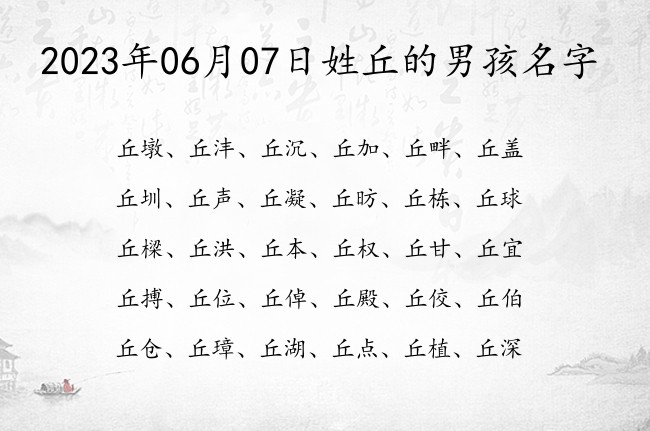 2023年06月07日姓丘的男孩名字
丘墩、丘沣、丘沉、丘加、丘畔、丘盖
丘圳、丘声、丘凝、丘昉、丘栋、丘球
丘樑、丘洪、丘本、丘权、丘甘、丘宜
丘搏、丘位、丘倬、丘殿、丘佼、丘伯
丘仓、丘璋、丘湖、丘点、丘植、丘深